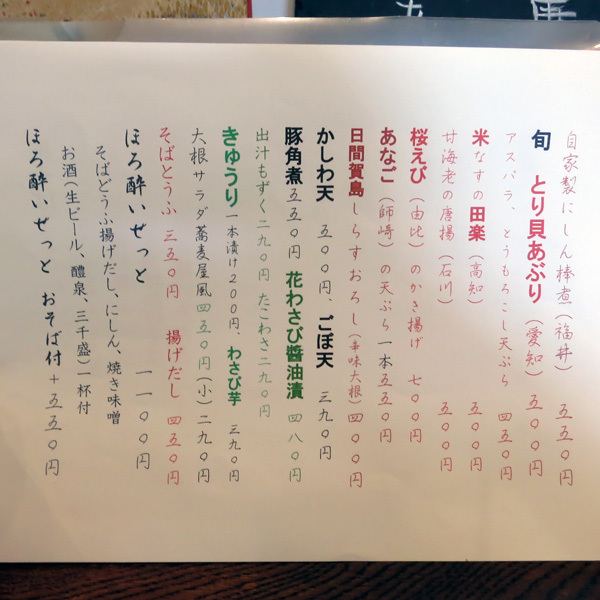 自家製にしん棒煮(福井) 五五〇円
旬 とり貝あぶり(愛知) 五〇〇円
アスパラ、とうもろこし天ぷら 四五〇円
米なすの田楽(高知) 五〇〇円
甘海老の唐揚(石川) 五〇〇円
桜えび(由比)のかき揚げ 七〇〇円
あなご(師崎)の天ぷら一本五五〇円
日間賀島しらすおろし(辛味大根)四〇〇円
かしわ天 五〇〇円、ごぼ天 三九〇円
豚角煮五五〇円 花わさび醬油漬 四八〇円
出汁もずく二九〇円 たこわさ二九〇円
きゅうり一本漬け200円、わさび芋 三九〇円
大根サラダ蕎麦屋風四五〇円(小)二九〇円
そばとうふ 三五〇円 揚げだし 四五〇円
ほろ酔いせっと 一一〇〇円
そばどうふ揚げだし、にしん、焼き味噌
お酒(生ビール、醴泉、三千盛)一杯付
ほろ酔いせっと おそば付+五五〇円